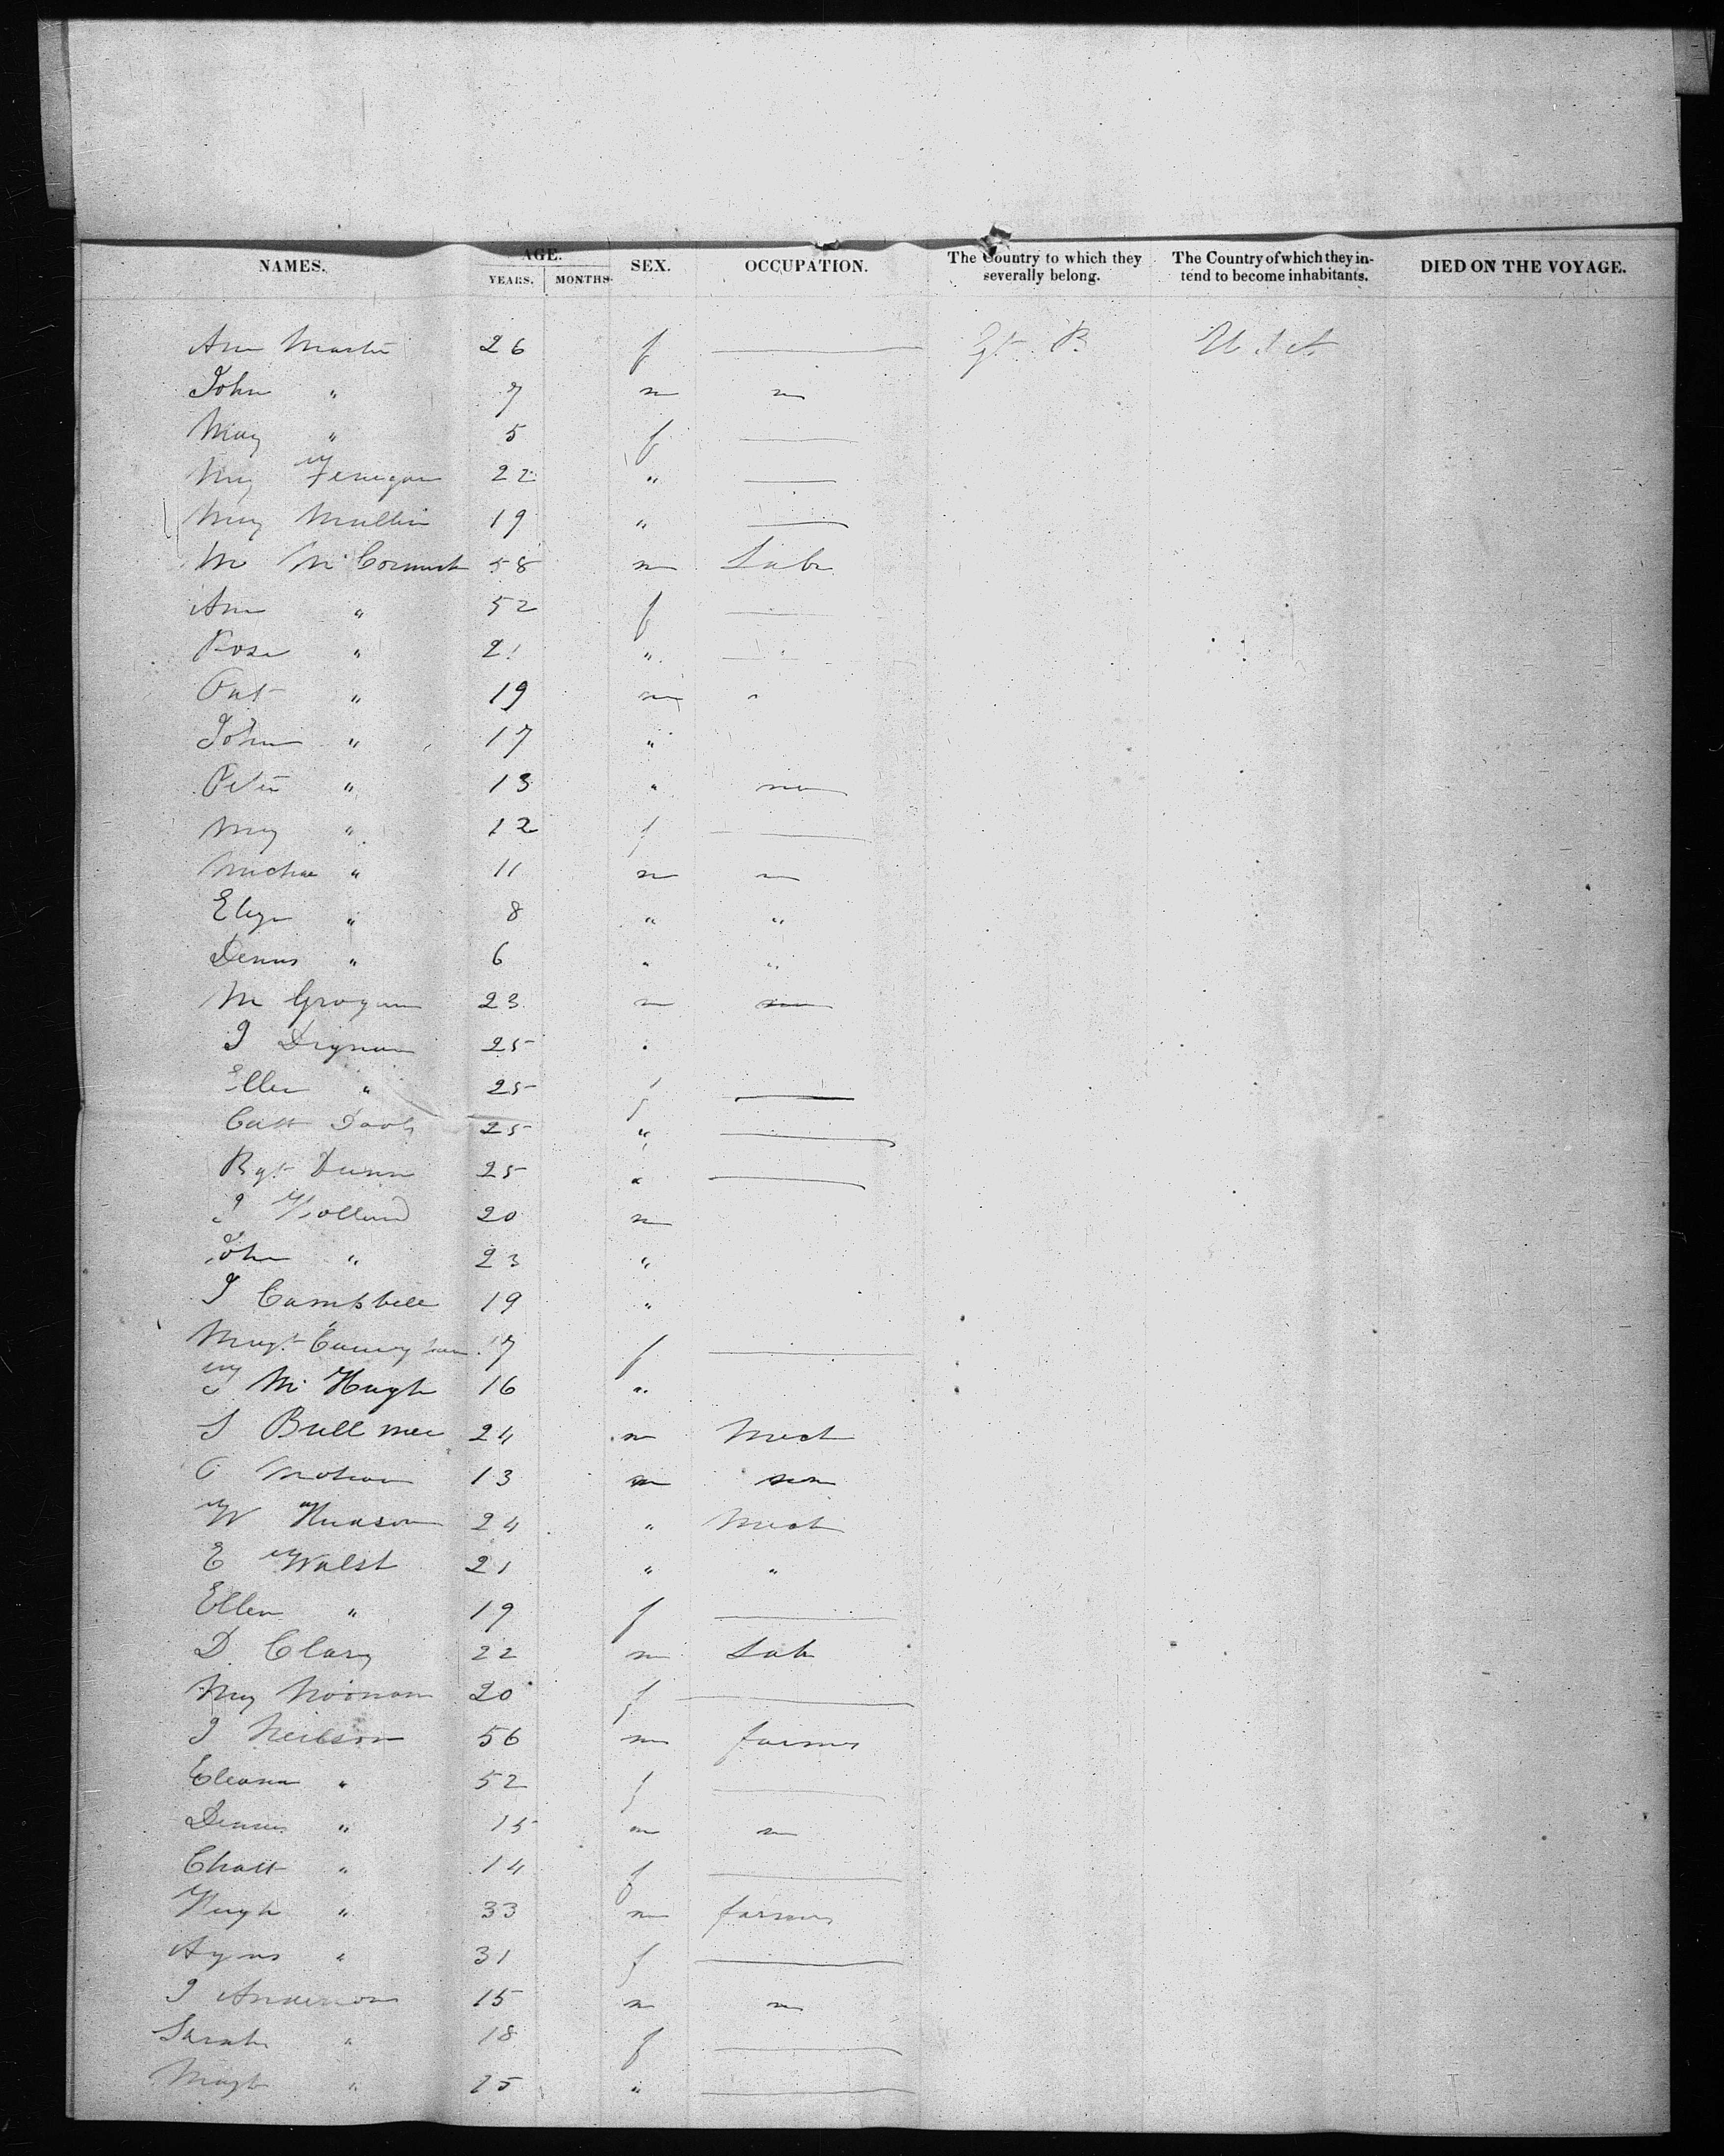 NAMES. AGE. YEARS. MONTHS. SEX. OCCUPATION. The Country to which they severally belong. The Country of which they intend to become inhabitants. DIED ON THE VOYAGE.
Ann Martin 26 f Gt. B U S A
John " 7 m
May " 5 f
My Finegan 22 "
May Mullin 19 "
M McCormick 58 m Labr
Ann " 52 f
Rose " 21 "
Pat " 19 m
John " 17 "
Peter " 13 "
My " 12 f
Michae " 11 m
Eliza " 8 " "
Dennis " 6 " "
M Grogan 23 m
J Dignam 25
Ellen " 25 f
Cath 25 "
Bgt Dunn 25 "
J Holland 20 m
John " 23 "
J Campbell 19 "
Magt 17 f
McHugh 16 "
S Bullmer 24 m Mech
13 m
W Hudson 24 " Mech
E Walsh 21 " "
Ellen " 19 f
D. Clary 22 m Lab
My Noonan 20 f
J Neilson 56 m farmer
Eleana " 52 f
Dennis " 15 m
Chatt " 14 f
Hugh " 33 m farmer
Agnes " 31 f
J Anderson 15 m
Sarah " 18 f
Magt " 25 "